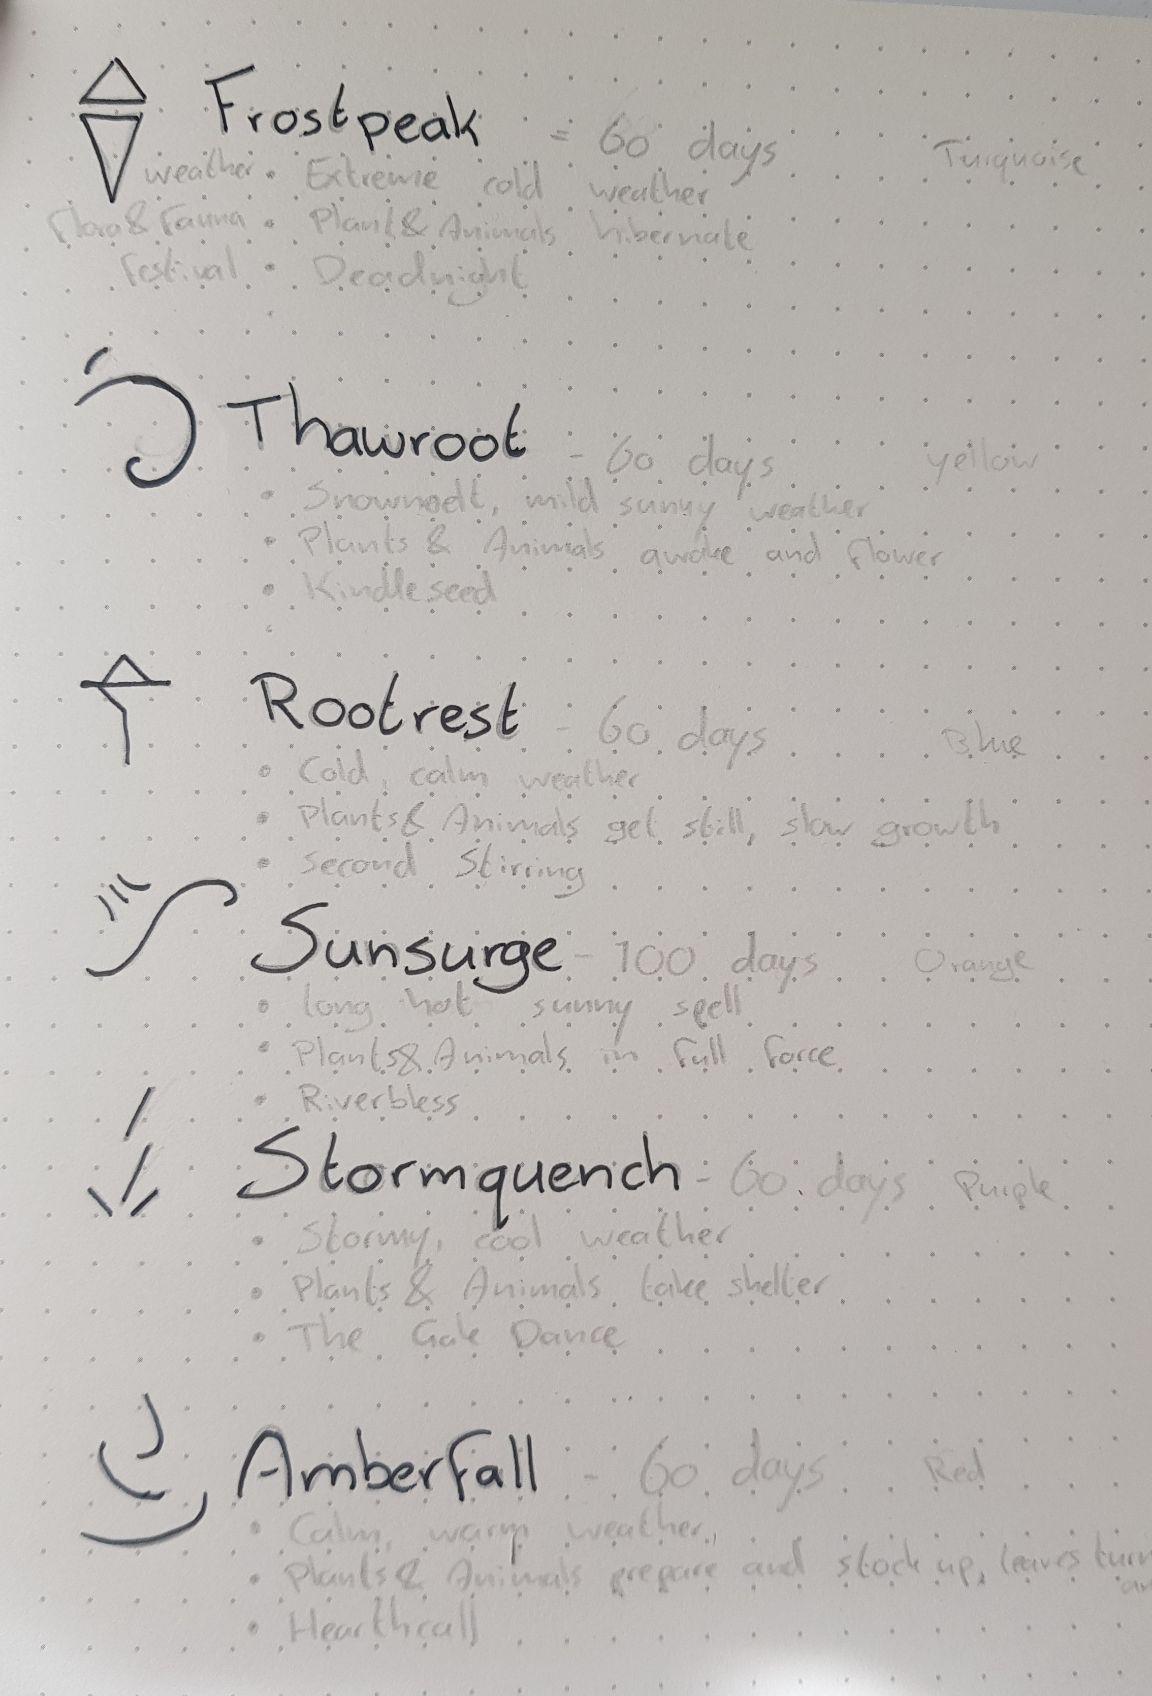 Frostpeak = 60 days Turquoise
weather • Extreme cold weather
Flora & Fauna • Plant & Animals hibernate
Festival • Deadnight
Thawroot - 60 days yellow
• Snowmelt, mild sunny weather
• Plants & Animals awake and flower
• Kindleseed
Rootrest - 60 days Blue
• Cold, calm weather
• Plants & Animals get still, slow growth
• Second Stirring
Sunsurge - 100 days Orange
• long hot sunny spell
• Plants & Animals in full force
• Riverbless
Stormquench - 60 days Purple
• Stormy, cool weather
• Plants & Animals take shelter
• The Gale Dance
Amberfall - 60 days Red
• Calm, warm weather,
• Plants & Animals prepare and stock up, leaves turn
• Hearthcall